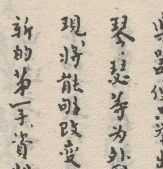 琴瑟等为外
現将能够改变
新的第一手資料